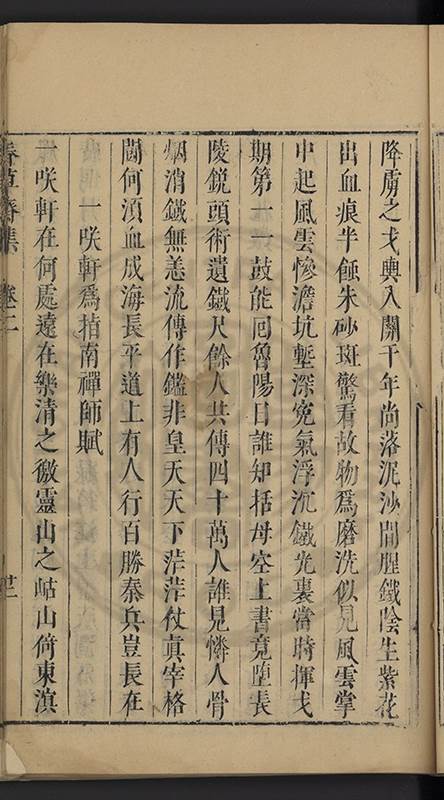 降虜之戈輿入關千年尚落泥沙間腥鐵陰生紫花
出血痕半蝕朱砂斑驚看故物爲磨洗似見風雲掌
中起風雲慘澹坑塹深寃氣浮沉鐵光裏當時揮戈
期第一一鼓能囘魯陽日誰知括母空上書竟墮長
陵鏡頭術遺鐵尺餘人共傳四十萬人誰見憐人骨
烟消鐵無恙流傳作鑑非皇天天下茫茫仗眞宰格
鬭何須血成海長平道上有人行百勝秦兵豈長在
一咲軒爲指南禪師賦
一咲軒在何處遠在樂清之徼靈山之岵山倚東滇
春草齋集 卷二 廿二